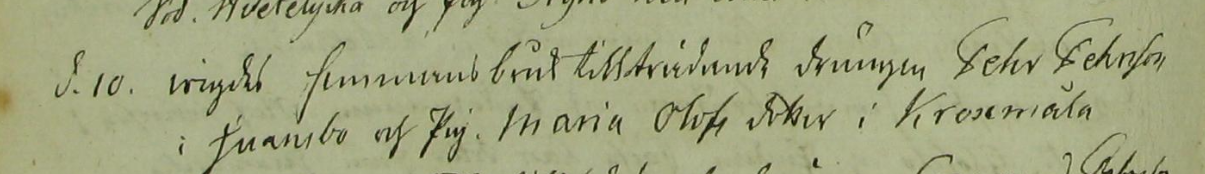 Sod. Hvetelycka och pig.
d. 10. wigdes hemmansbruk tillträdande drängen Pehr Pehrson
i Juansbo och Pig. Maria Olofs dotter i Kroxmåla